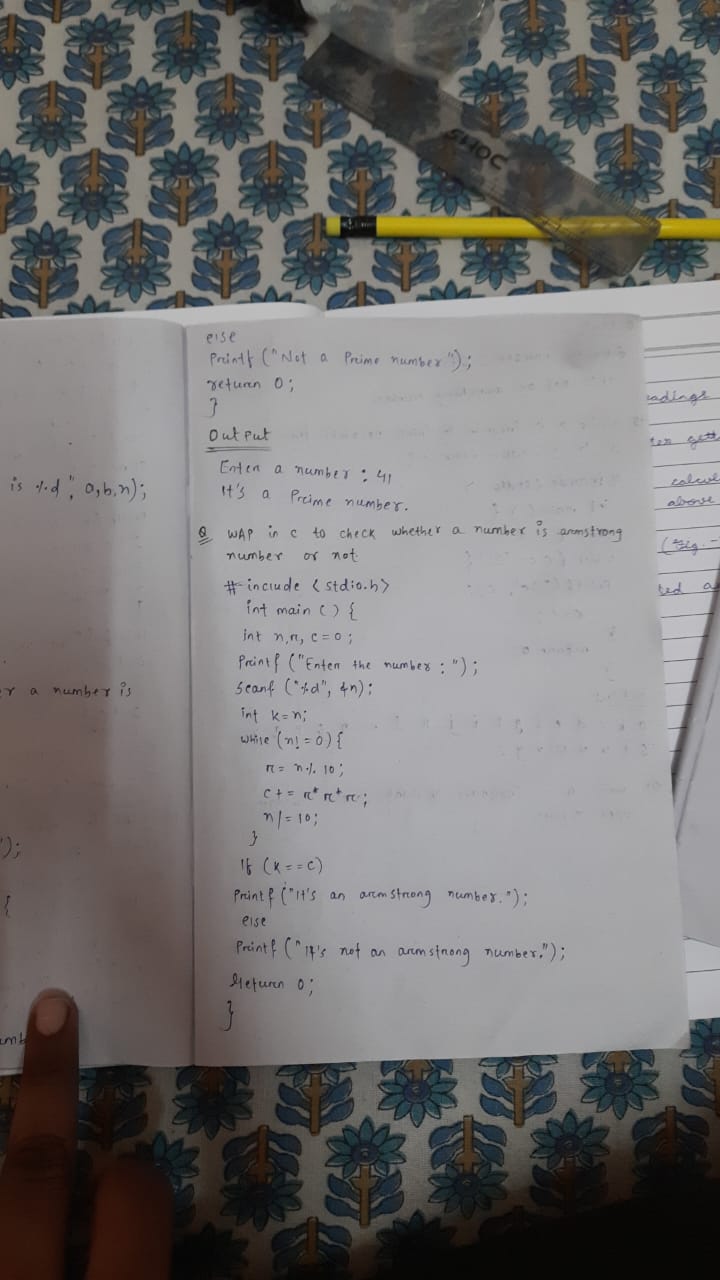 SHOC
else
Printf ("Not a Prime number");
return 0;
}
Output
Enter a number : 41
It's a Prime number.
Q WAP in c to check whether a number is armstrong
number or not.
# include <stdio.h>
int main () {
int n,r, c=0;
Printf ("Enter the number : ");
Scanf ("%d", &n);
int k=n;
while (n! = 0) {
r = n % 10;
c + = r* r* r;
n/= 10;
}
If (k = = c)
Printf ("It's an armstrong number.");
else
Printf ("It's not an armstrong number.");
return 0;
}
is %d", a,b,n);
a number is
");
{
eadings
calcul
above
(Fig. -
ted a